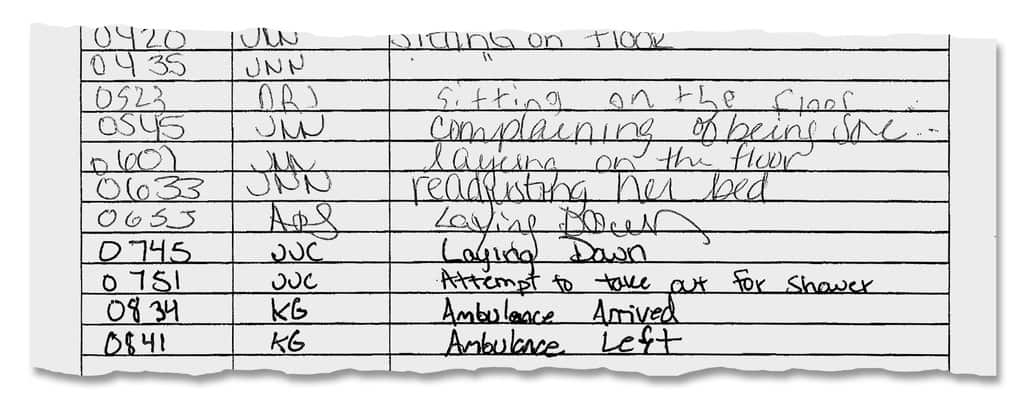 0420 JNN Sitting on floor
0435 JNN "
0523 sitting on the floor
0545 JNN complaining of being sore...
0607 JNN laying on the floor
0633 JNN readjusting her bed
0655 Laying Down
0745 JJC Laying Down
0751 JJC Attempt to take out for shower
0834 KG Ambulance Arrived
0841 KG Ambulance Left